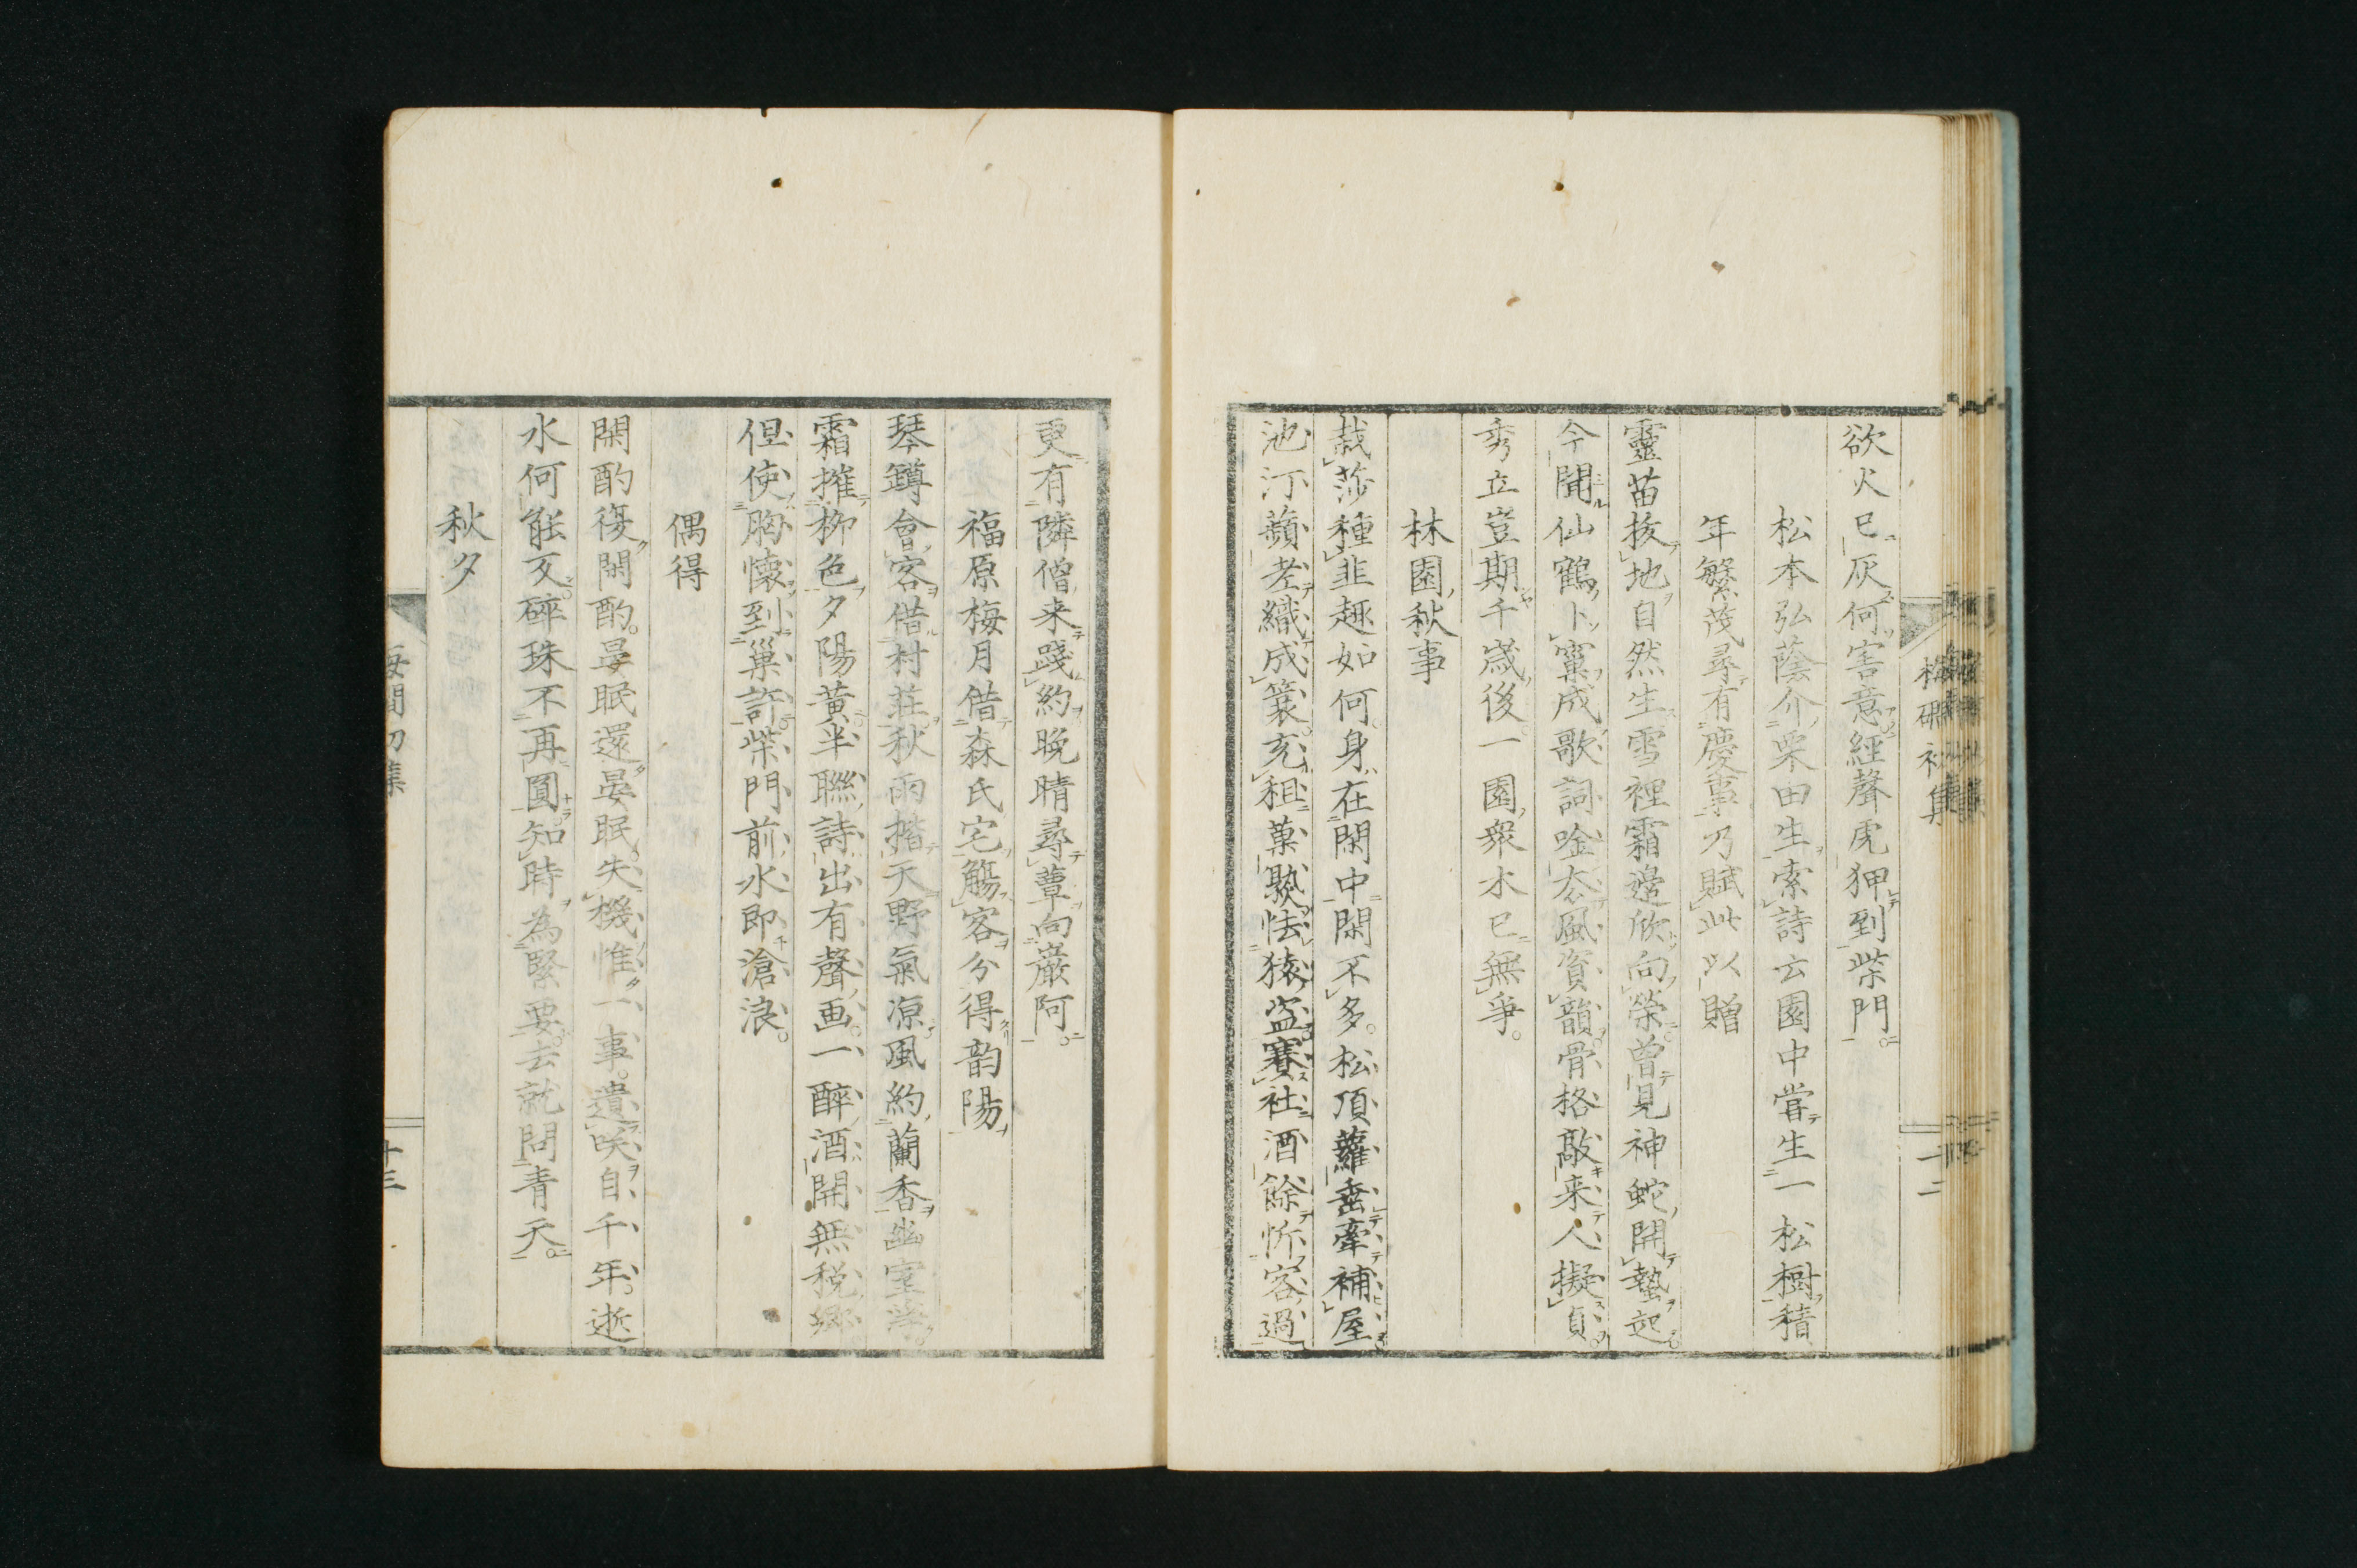 欲火已灰何害意經聲虎狎到柴門
松本弘蔭介栗田生索詩云園中嘗生一松樹積
年繁茂尋有慶事乃賦此以贈
靈苗抜地自然生雪裡霜邊欣向榮曽見神蛇開蟄起
今聞仙鶴卜窠成歌詞唫太風資韻骨格敲来人擬貞
秀立豈期千歳後一園衆木已無爭
林園秋事
裁莎種韭趣如何身在閑中閑不多松頂蘿垂牽補屋
池汀蘋老織成簑充租菓熟怯猿盗賽社酒餘忻客過
更有隣僧来踐約晩晴尋蕈向巌阿
福原梅月借森氏宅觴客分得韵陽
琴罇會客借村莊秋雨揩天野氣凉風約蘭香幽室
霜摧柳色夕陽黄半聯詩出有聲画一醉酒開無税郷
但使胸懐到巣許柴門前水即滄浪
偶得
閑酌復閑酌晏眠還晏眠失機惟一事遺咲自千年逝
水何能反碎珠不再圓知時為緊要去就問青天
秋夕
十三